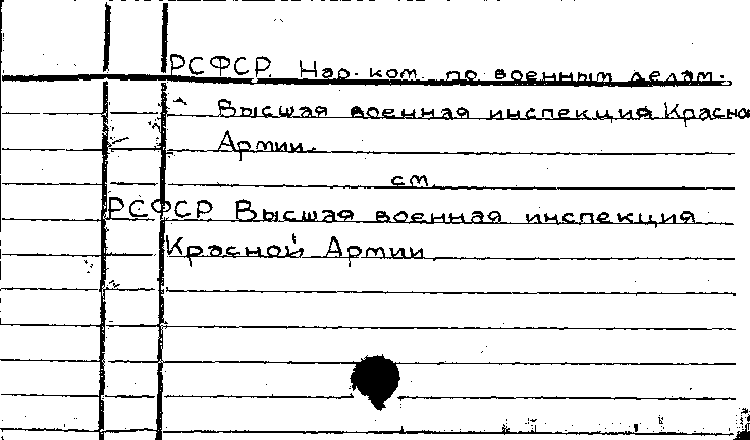 РСФСР. Нар. ком. по военным делам.
Высшая военная инспекция Красной
Армии.
см.
РСФСР. Высшая военная инспекция
Красной Армии